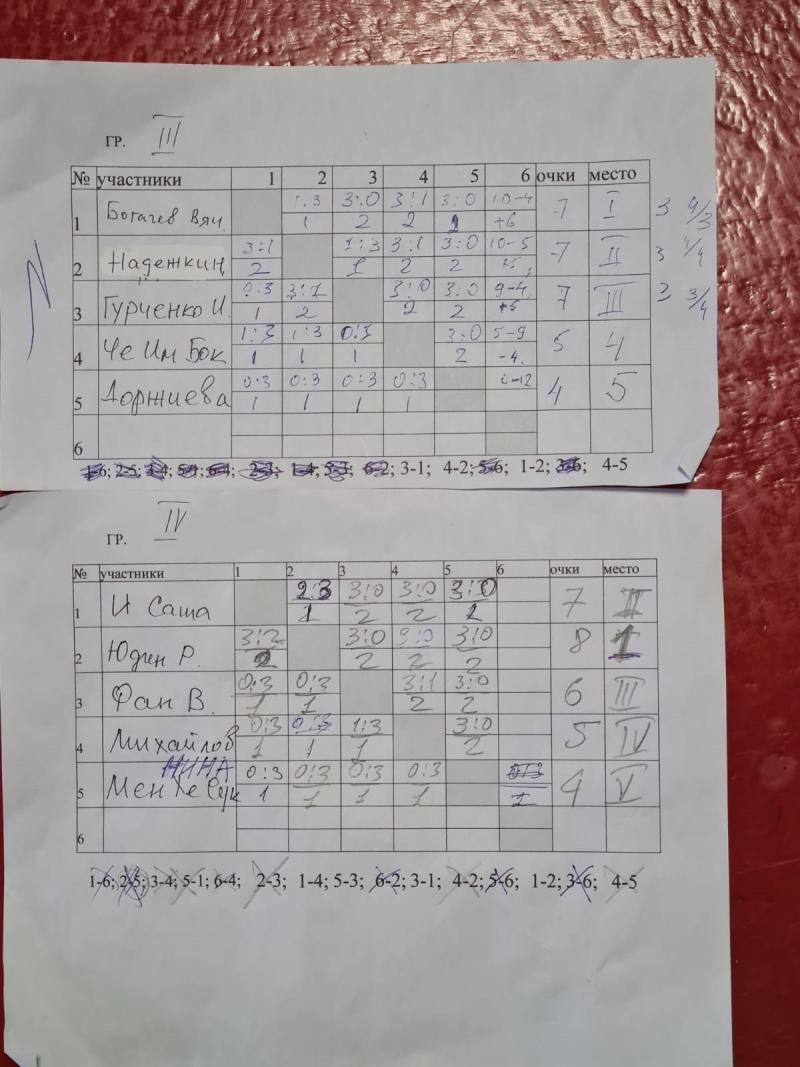 ГР. III
№ участники 1 2 3 4 5 6 очки место
1 Богачев Вяч. 1:3 3:0 3:1 3:0 10-4 7 I 3 9/3
1 2 2 2 +6
2 Надежкин 3:1 1:3 3:1 3:0 10-5 7 II 3 4/4
2 1 2 2 +5
3 Гурченко И. 0:3 3:1 3:0 3:0 9-4 7 III 3 3/4
1 2 2 2 +5
4 Че Им Бок 1:3 1:3 0:3 3:0 5-9 5 4
1 1 1 2 -4
5 Доржиева 0:3 0:3 0:3 0:3 0-12 4 5
1 1 1 1
6
1-6; 2-5; 3-4; 5-1; 6-4; 2-3; 1-4; 5-3; 6-2; 3-1; 4-2; 5-6; 1-2; 3-6; 4-5
ГР. IV
№ участники 1 2 3 4 5 6 очки место
1 И Саша 2:3 3:0 3:0 3:0 7 II
1 2 2 2
2 Юдин Р. 3:2 3:0 3:0 3:0 8 1
2 2 2 2
3 Фан В. 0:3 0:3 3:1 3:0 6 III
1 1 2 2
4 Михайлов 0:3 0:3 1:3 3:0 5 IV
1 1 1 2
НИНА
5 Мен Хе Сук 0:3 0:3 0:3 0:3 4 V
1 1 1 1 1
6
1-6; 2-5; 3-4; 5-1; 6-4; 2-3; 1-4; 5-3; 6-2; 3-1; 4-2; 5-6; 1-2; 3-6; 4-5